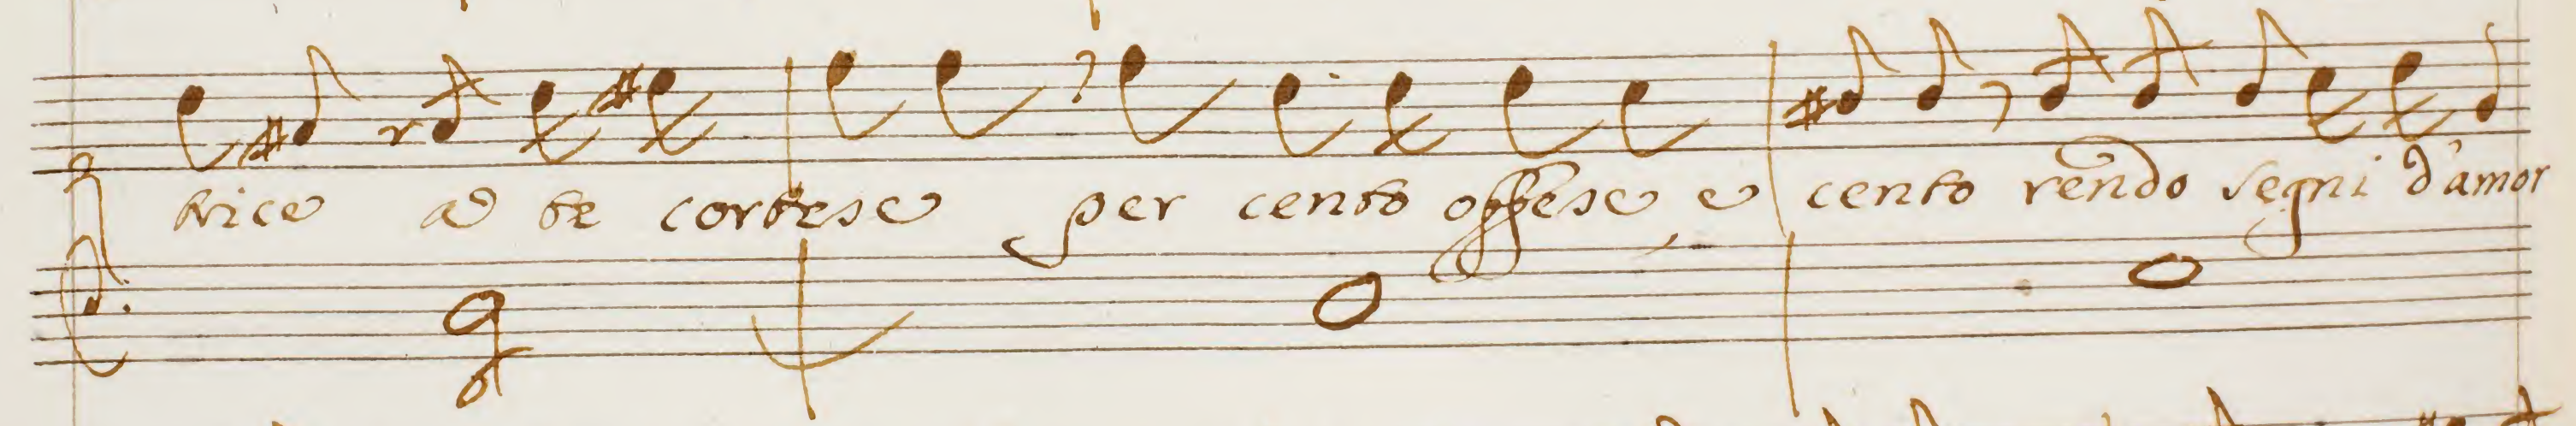 trice a te cortese per cento offese e cento rendo segni d'amor